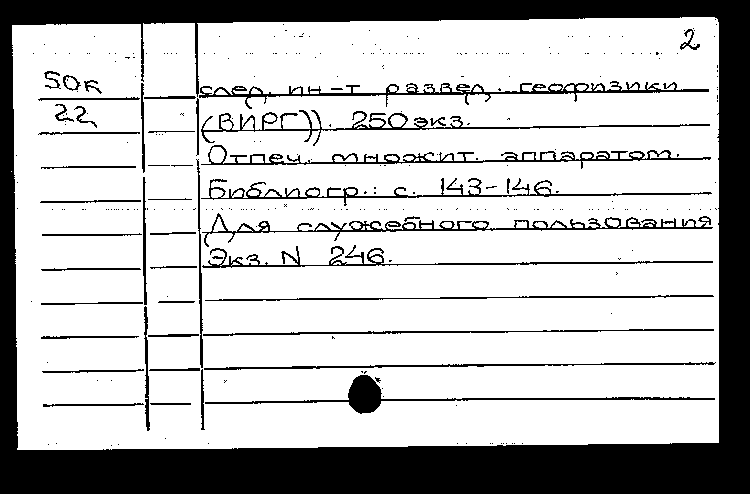 2
50к
22
след. ин-т развед. геофизики
(ВИРГ)). 250 экз.
Отпеч. множит. аппаратом.
Библиогр.: с. 143-146.
Для служебного пользования
Экз. N 246.